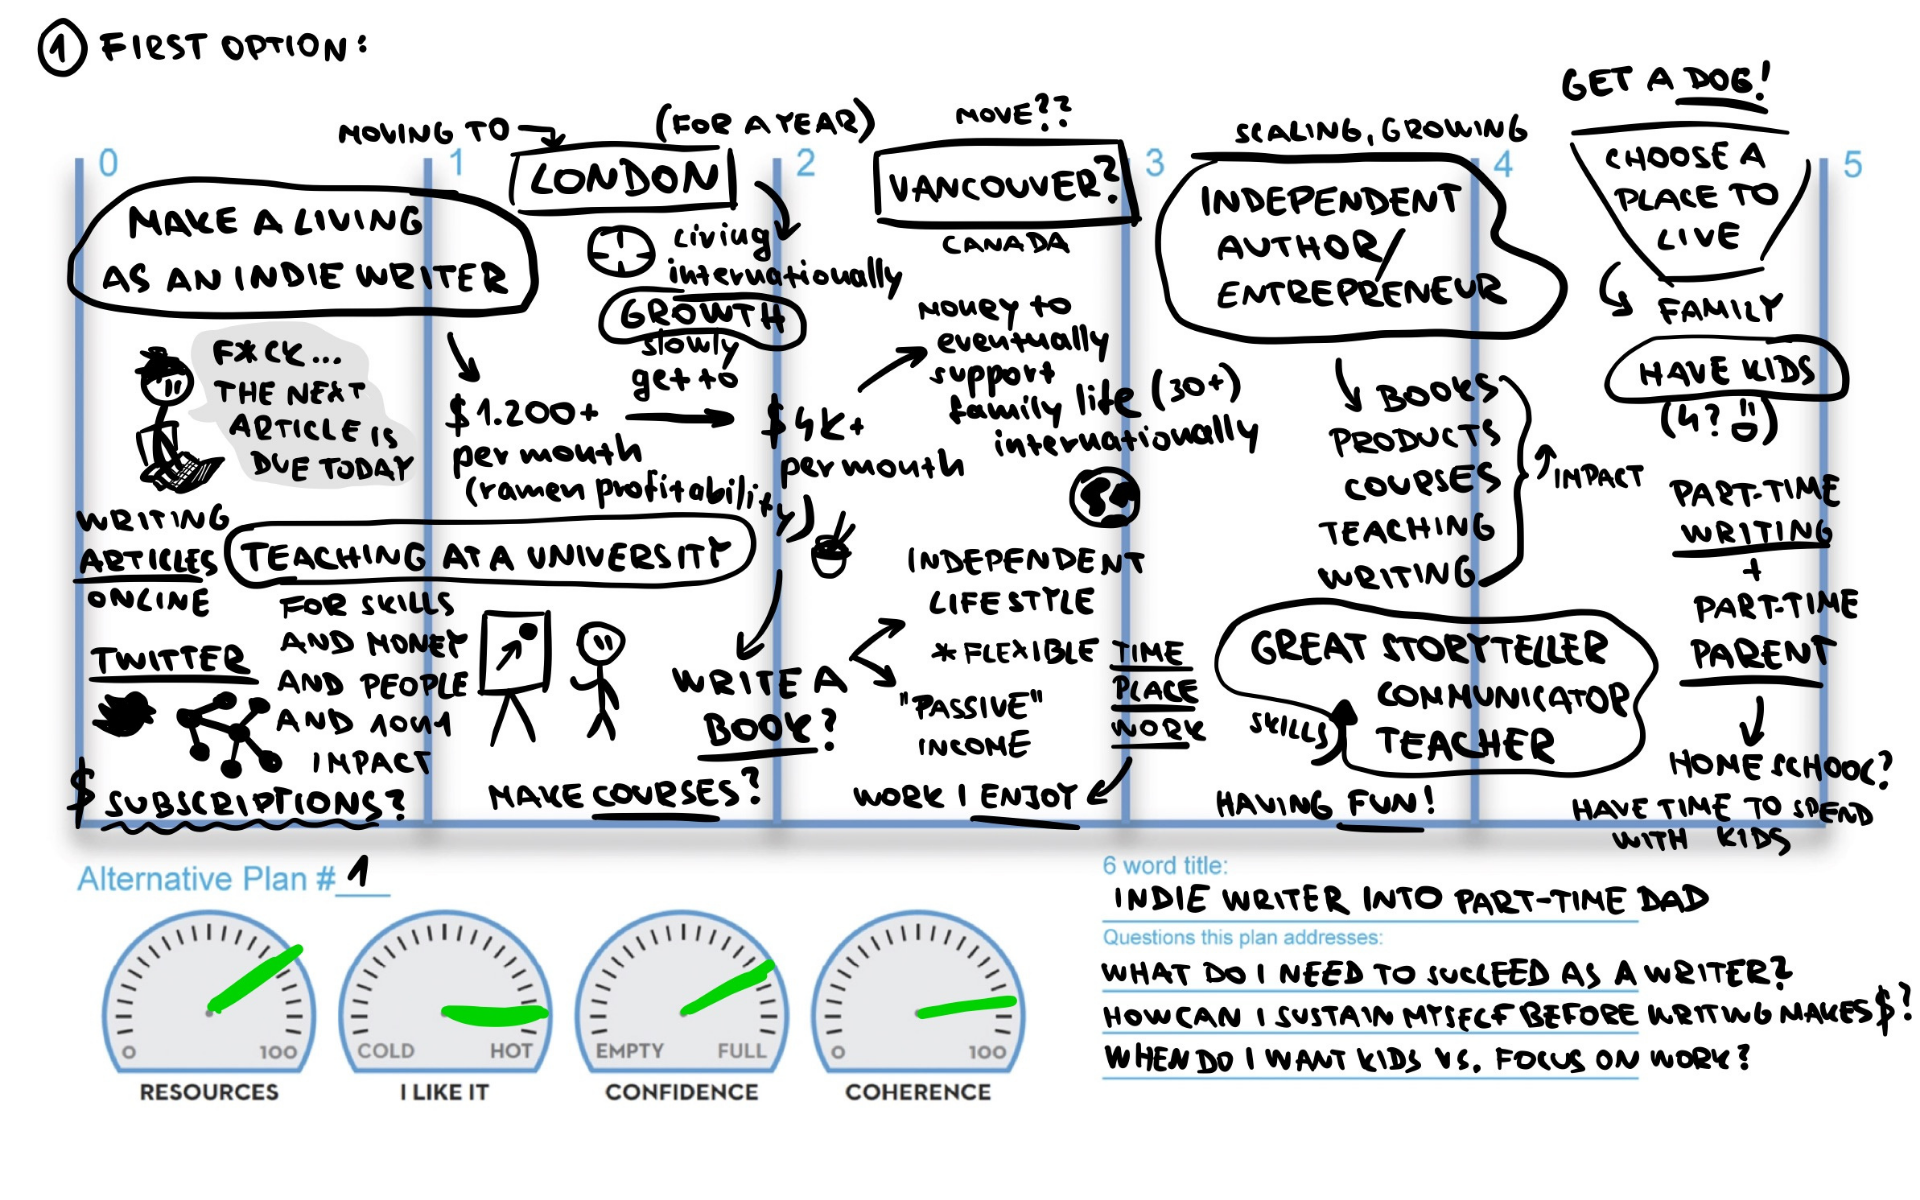 1 FIRST OPTION:
MOVING TO
(FOR A YEAR)
MOVE??
SCALING, GROWING
GET A DOG!
0
1
2
3
4
5
MAKE A LIVING
AS AN INDIE WRITER
F*CK...
THE NEXT
ARTICLE IS
DUE TODAY
WRITING
ARTICLES
ONLINE
TWITTER
$ SUBSCRIPTIONS?
TEACHING AT A UNIVERSITY
FOR SKILLS
AND MONEY
AND PEOPLE
AND 1 ON 1
IMPACT
LONDON
living
internationally
GROWTH
slowly
get to
$1.200+
per month
(ramen profitability)
$4K+
per month
WRITE A
BOOK?
MAKE COURSES?
VANCOUVER?
CANADA
money to
eventually
support
family life (30+)
internationally
INDEPENDENT
LIFESTYLE
* FLEXIBLE TIME
PLACE
WORK
"PASSIVE"
INCOME
WORK I ENJOY
INDEPENDENT
AUTHOR/
ENTREPRENEUR
BOOKS
PRODUCTS
COURSES
TEACHING
WRITING
IMPACT
GREAT STORYTELLER
COMMUNICATOR
TEACHER
SKILLS
HAVING FUN!
CHOOSE A
PLACE TO
LIVE
FAMILY
HAVE KIDS
(4? )
PART-TIME
WRITING
+
PART-TIME
PARENT
HOMESCHOOL?
HAVE TIME TO SPEND
WITH KIDS
Alternative Plan # 1
0 100
RESOURCES
COLD HOT
I LIKE IT
EMPTY FULL
CONFIDENCE
0 100
COHERENCE
6 word title:
INDIE WRITER INTO PART-TIME DAD
Questions this plan addresses:
WHAT DO I NEED TO SUCCEED AS A WRITER?
HOW CAN I SUSTAIN MYSELF BEFORE WRITING MAKES $?
WHEN DO I WANT KIDS VS. FOCUS ON WORK?